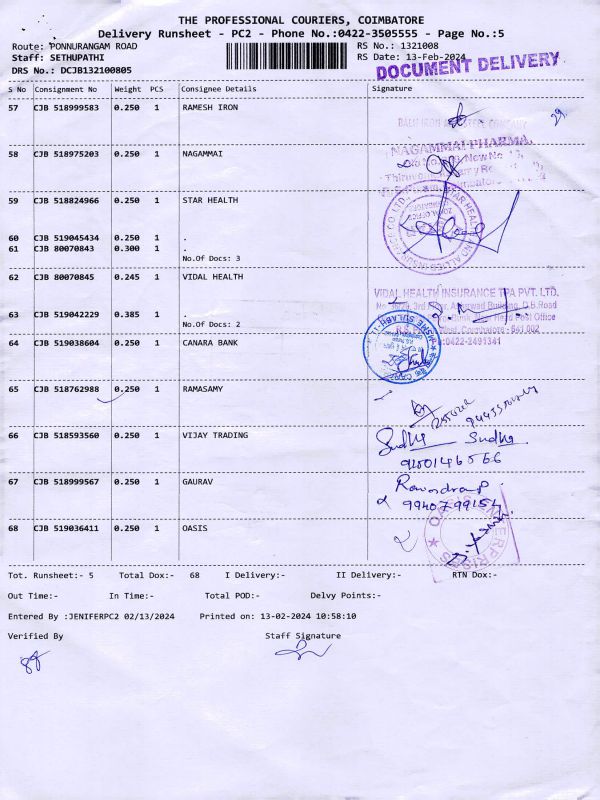 THE PROFESSIONAL COURIERS, COIMBATORE
Delivery Runsheet - PC2 - Phone No.:0422-3505555 - Page No.:5
Route: PONNURANGAM ROAD RS No.: 1321008
Staff: SETHUPATHI RS Date: 13-Feb-2024
DRS No.: DCJB132100805 DOCUMENT DELIVERY
S No Consignment No Weight PCS Consignee Details Signature
57 CJB 518999583 0.250 1 RAMESH IRON
29.
58 CJB 518975203 0.250 1 NAGAMMAI
NAGAMMAI PHARMA,
59 CJB 518824966 0.250 1 STAR HEALTH
60 CJB 519045434 0.250 1 .
61 CJB 80070843 0.300 1 .
No.Of Docs: 3
62 CJB 80070845 0.245 1 VIDAL HEALTH
VIDAL HEALTH INSURANCE TPA PVT. LTD.
63 CJB 519042229 0.385 1 .
No.Of Docs: 2
Coimbatore - 641 002
:0422-2491341
64 CJB 519038604 0.250 1 CANARA BANK
65 CJB 518762988 0.250 1 RAMASAMY
66 CJB 518593560 0.250 1 VIJAY TRADING
Sudha Sudha
67 CJB 518999567 0.250 1 GAURAV
68 CJB 519036411 0.250 1 OASIS
OASIS ENTERPRISES
Tot. Runsheet:- 5 Total Dox:- 68 I Delivery:- II Delivery:- RTN Dox:-
Out Time:- In Time:- Total POD:- Delvy Points:-
Entered By :JENIFERPC2 02/13/2024 Printed on: 13-02-2024 10:58:10
Verified By Staff Signature